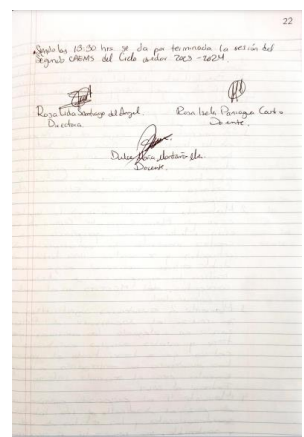 22
Siendo las 13:30 hrs. se da por terminada la sesión del
Segundo CAEMS del Ciclo escolar 2023-2024.
Rosa Lidia Santiago del Ángel.
Directora.
Rosa Isela Paniagua Castro
Docente.
Dulce María
Docente.